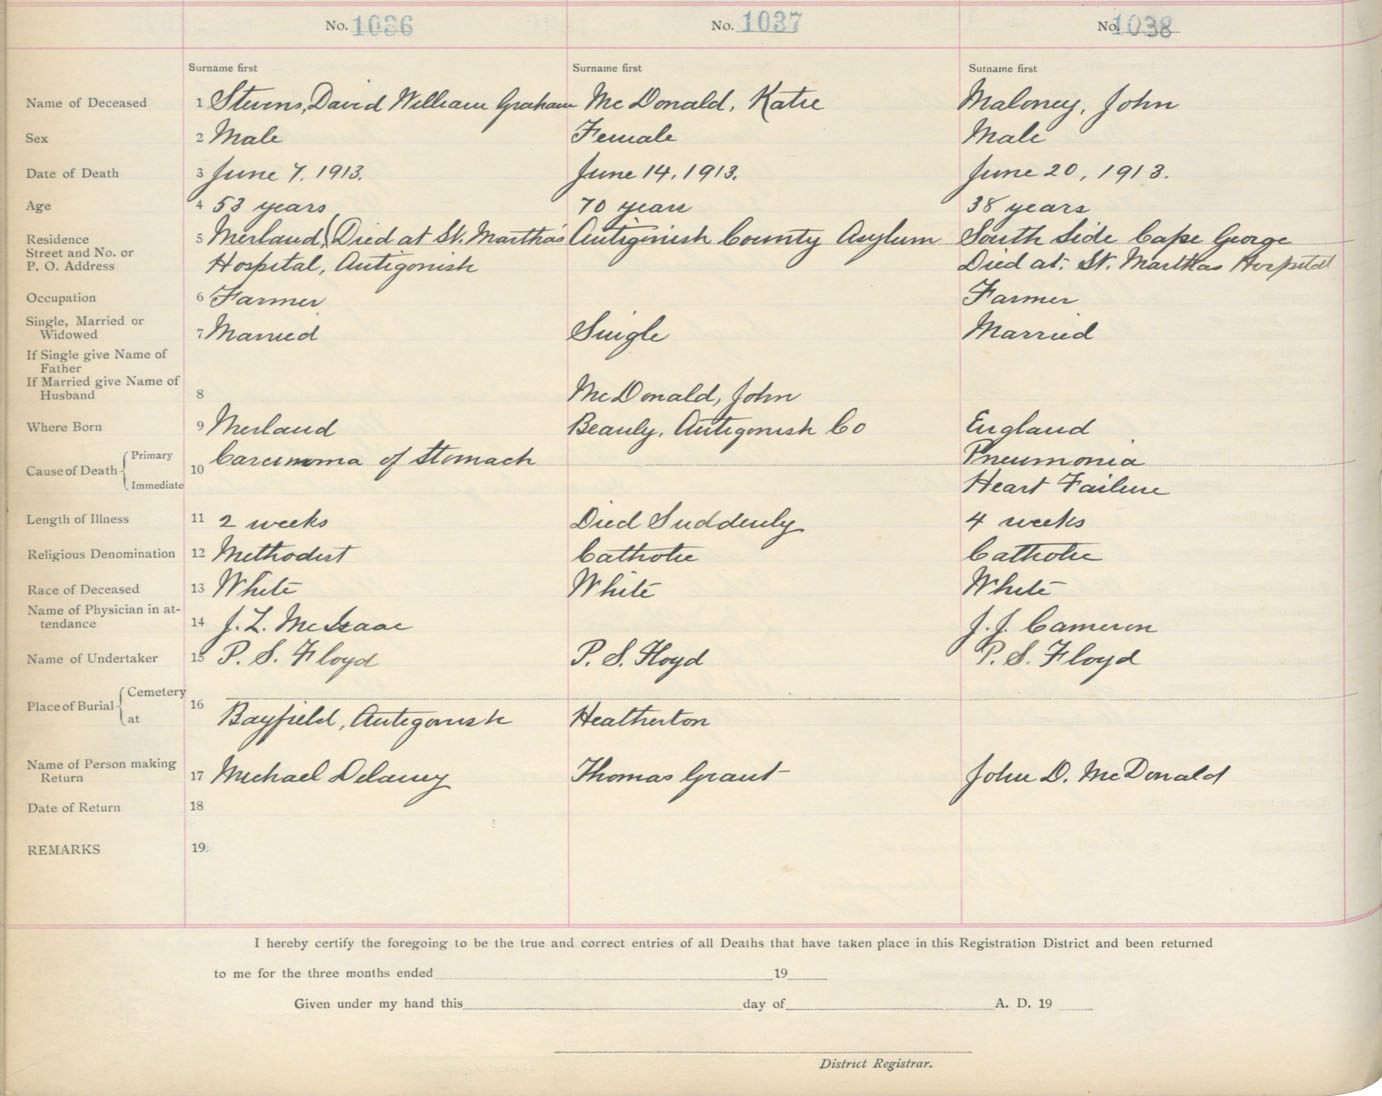 No. 1036 No. 1037 No. 1038
Surname first Surname first Surname first
Name of Deceased 1 Stevens, David William Graham McDonald, Katie Maloney, John
Sex 2 Male Female Male
Date of Death 3 June 7, 1913. June 14, 1913. June 20, 1913.
Age 4 53 years 70 years 38 years
Residence 5 Merland, (Died at St. Martha's Antigonish County Asylum South Side Cape George
Street and No. or
P. O. Address Hospital, Antigonish Died at St. Marthas Hospital
Occupation 6 Farmer Farmer
Single, Married or
Widowed 7 Married Single Married
If Single give Name of
Father
If Married give Name of
Husband 8 McDonald, John
Where Born 9 Merland Beauly, Antigonish Co England
Cause of Death Primary 10 Carcinoma of Stomach Pneumonia
Immediate Heart Failure
Length of Illness 11 2 weeks Died Suddenly 4 weeks
Religious Denomination 12 Methodist Catholic Catholic
Race of Deceased 13 White White White
Name of Physician in at-
tendance 14 J. L. McIsaac J. J. Cameron
Name of Undertaker 15 P. S. Floyd P. S. Floyd P. S. Floyd
Place of Burial Cemetery 16
at Bayfield, Antigonish Heatherton
Name of Person making
Return 17 Michael Delaney Thomas Grant John D. McDonald
Date of Return 18
REMARKS 19
I hereby certify the foregoing to be the true and correct entries of all Deaths that have taken place in this Registration District and been returned
to me for the three months ended 19
Given under my hand this day of A. D. 19
District Registrar.